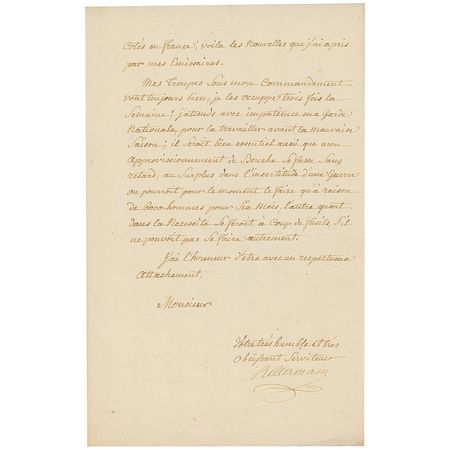 cotés en france; voila les Nouvelles que j'ai apris
par mes Emissaires.
Mes Troupes Sous mon Commandement
vont toujours bien, je les occuppe trois fois la
Semaine; j'attends avec impatience ma Garde
Nationale, pour la travailler avant la Mauvaise
Saison; il Seroit bien essentiel aussi que mon
Approvissionnement de Bouche Se fasse Sans
retard, au Surplus dans l'incertitude d'une Guerre
on pourroit pour le moment le faire qu'à raison
de 6000. hommes pour Six Mois, l'autre quart
dans la Necessité Se feroit à Coup de fusils, S'il
ne pouvoit pas Se faire autrement.
J'ai l'honneur d'etre avec un respectueux
Attachement,
Monsieur
Votre très humble et très
obéissant Serviteur
Kellermann